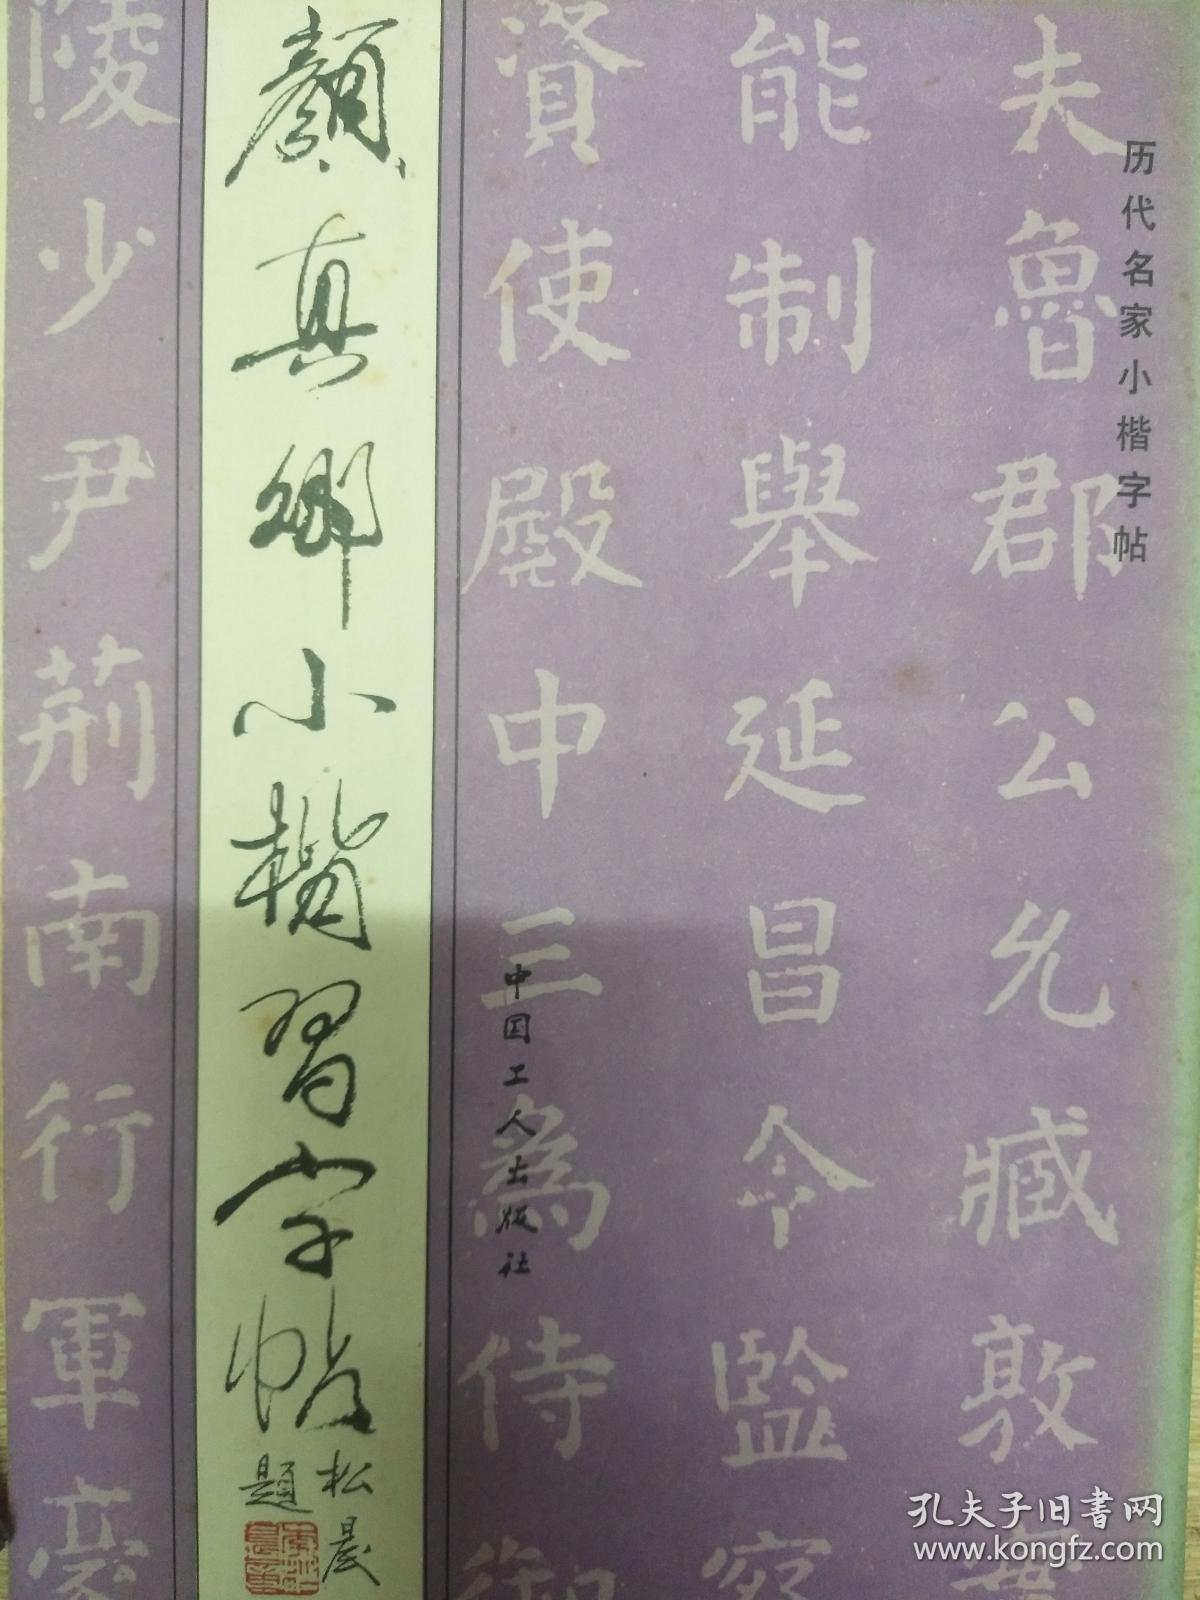 历代名家小楷字帖
夫魯郡公允臧敦
能制舉延昌令監察
資使殿中三為侍御
中国工人出版社
顏真卿小楷習字帖
松晨
題
陵少尹荊南行軍
孔夫子旧书网
www.kongfz.com